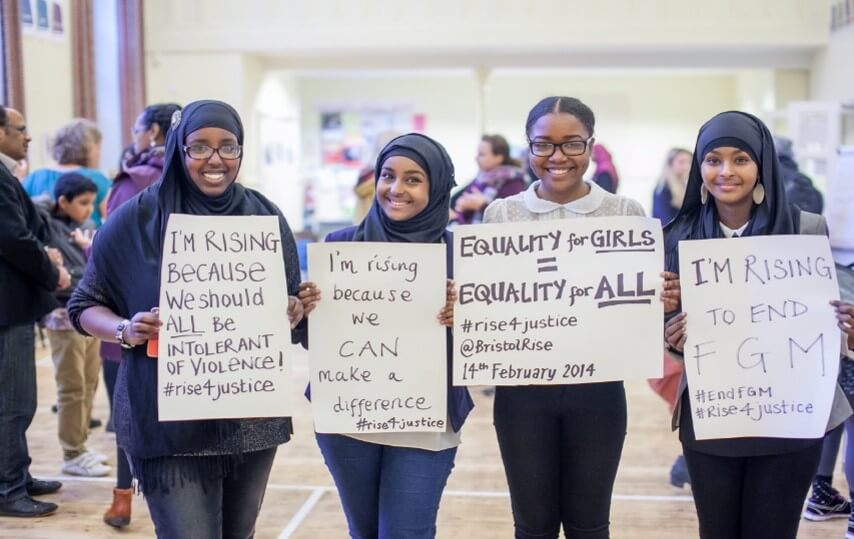 I'M RISING
BECAUSE
WE SHOULD
ALL BE
INTOLERANT
OF VIOLENCE!
#rise4justice
I'm rising
because
we
CAN
make a
difference
#rise4justice
EQUALITY for GIRLS
=
EQUALITY for ALL
#rise4justice
@BristolRise
14th February 2014
I'M RISING
TO END
FGM
#EndFGM
#Rise4justice